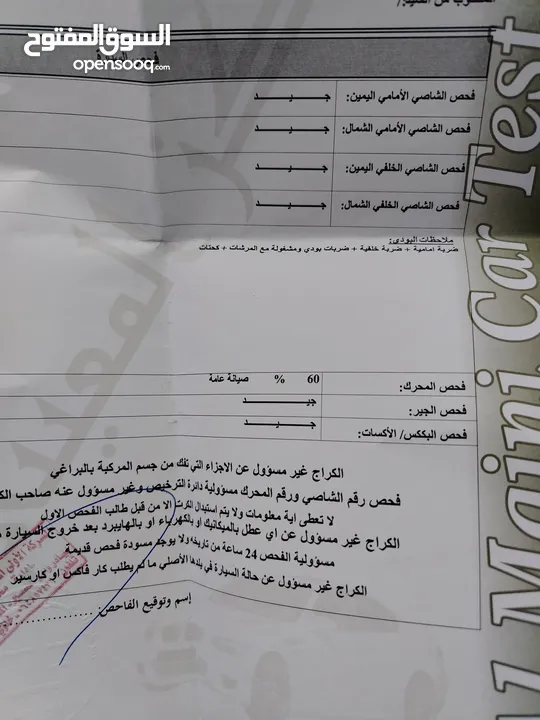 السوق المفتوح
opensooq.com
فحص الشاصي الأمامي اليمين: جـــيـــد
فحص الشاصي الأمامي الشمال: جـــيـــد
فحص الشاصي الخلفي اليمين: جـــيـــد
فحص الشاصي الخلفي الشمال: جـــيـــد
ملاحظات البودي:
ضربة امامية + ضربة خلفية + ضربات بودي ومشغولة مع المرشات + كحتات
فحص المحرك: 60 % صيانة عامة
فحص الجير: جيـــــد
فحص البككس/ الأكسات: جـــيـــد
الكراج غير مسؤول عن الاجزاء التي تفك من جسم المركبة بالبراغي
فحص رقم الشاصي ورقم المحرك مسؤولية دائرة الترخيص وغير مسؤول عنه صاحب
لا تعطى اية معلومات ولا يتم استبدال الكرت الا من قبل طالب الفحص الاول
الكراج غير مسؤول عن اي عطل بالميكانيك او بالكهرباء او بالهايبرد بعد خروج السيارة
مسؤولية الفحص 24 ساعة من تاريخه ولا يوجد مسودة فحص قديمة
الكراج غير مسؤول عن حالة السيارة في بلدها الأصلي ما لم يطلب كار فاكس او كارسير
إسم وتوقيع الفاحص: ....................
Maini Car Test